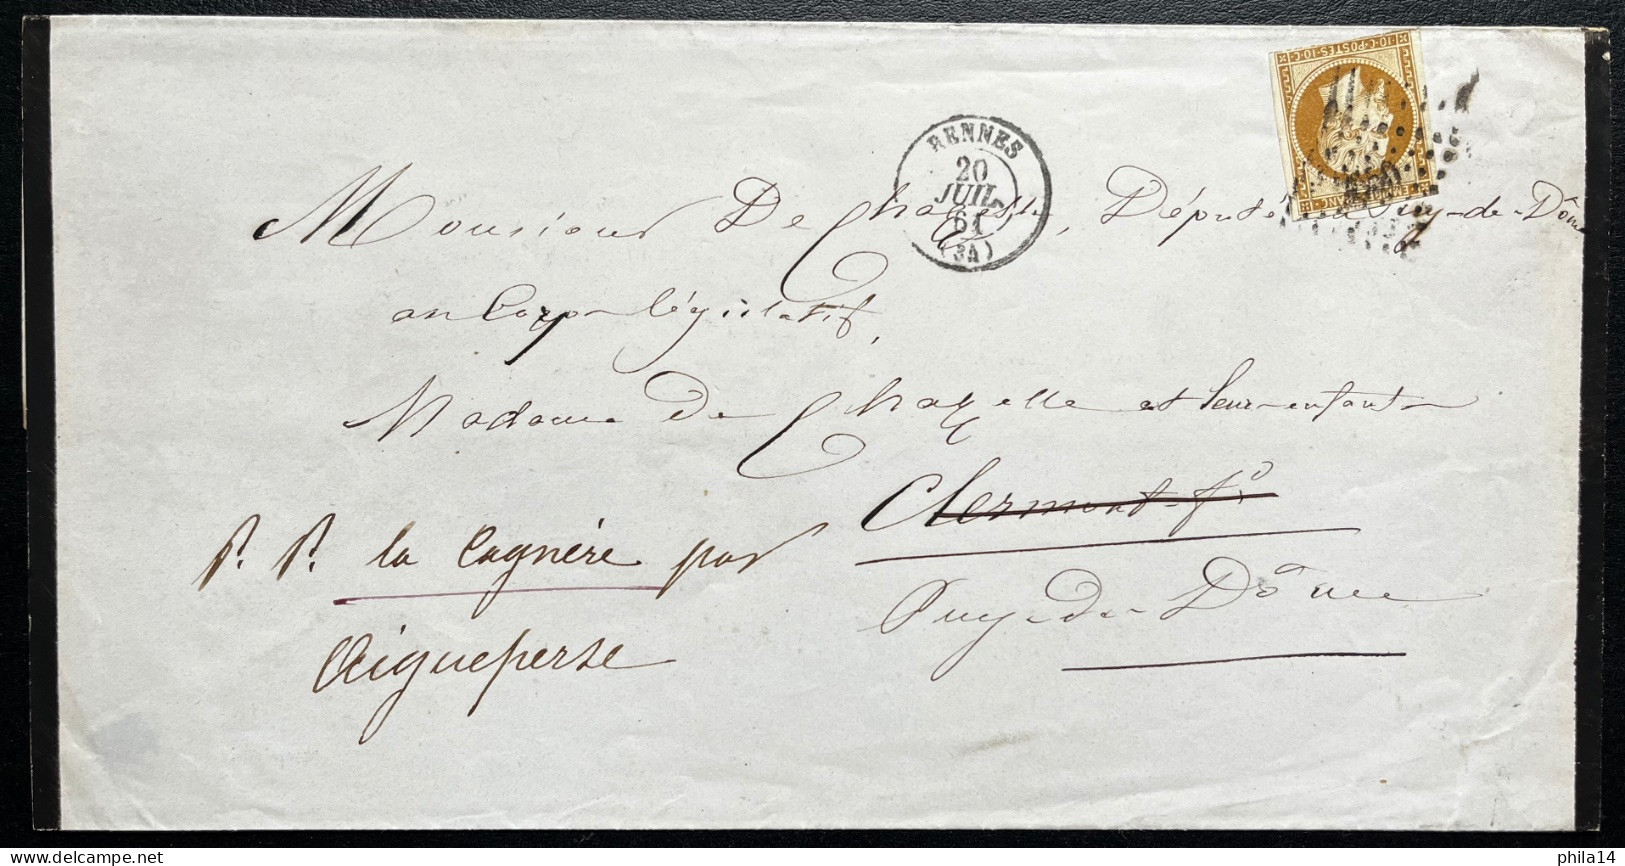 10·C·POSTES·10·C
EMP FRANC
RENNES
20
JUIL
61
(3A)
Monsieur De Chazelles, Député du Puy-de-Dôme
au Corps législatif,
Madame De Chazelle et leurs enfants
Clermont-fd
P. P. la Cagnère par
Puy-de-Dôme
Aigueperse
delcampe.net
phila14